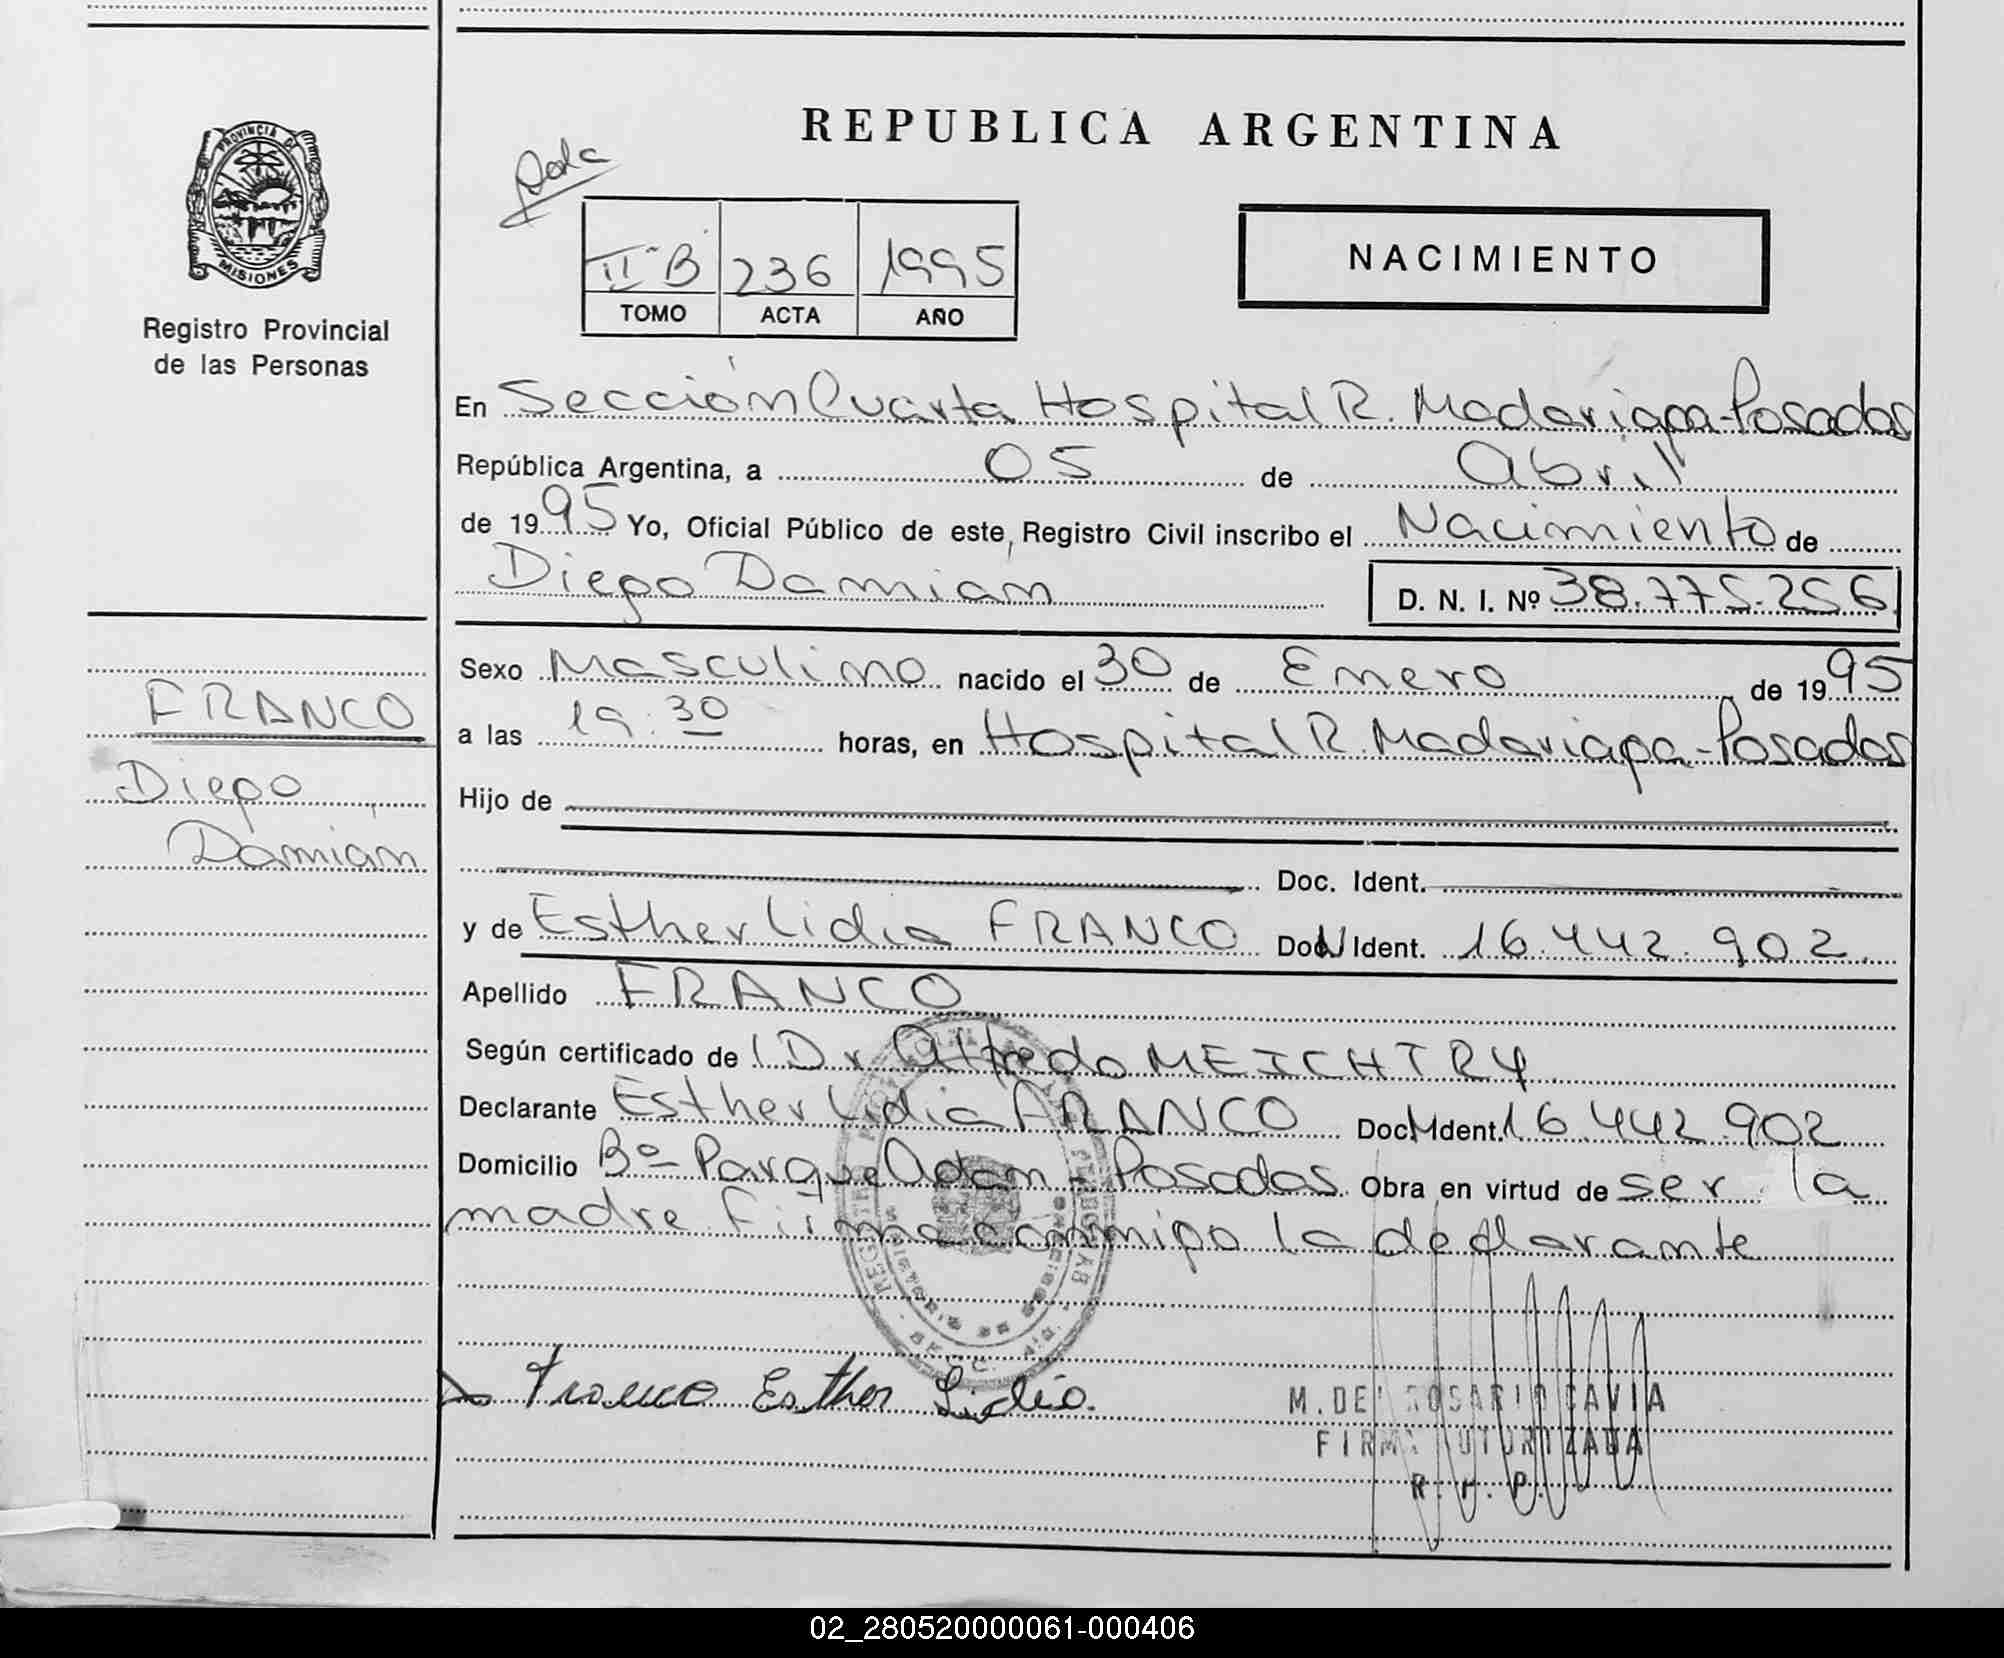 REPUBLICA ARGENTINA
PROVINCIA DE
MISIONES
Registro Provincial
de las Personas
II B 236 1995
TOMO ACTA AÑO
NACIMIENTO
En Sección Cuarta Hospital R. Madariaga-Posadas
República Argentina, a 05 de Abril
de 1995 Yo, Oficial Público de este Registro Civil inscribo el Nacimiento de
Diego Damian D. N. I. Nº 38.775.256
Sexo Masculino nacido el 30 de Enero de 1995
FRANCO
Diego
Damián
a las 19:30 horas, en Hospital R. Madariaga-Posadas
Hijo de
Doc. Ident.
y de Esther Lidia FRANCO Doc. Ident. 16.442.902
Apellido FRANCO
Según certificado de l Dr Alfredo MEICHTRY
Declarante Esther Lidia FRANCO Doc. Ident. 16.442.902
Domicilio Bº- Parque Adam - Posadas Obra en virtud de ser la
madre Firma conmigo la declarante
Franco Esther Lidia.
M. DEL ROSARIO GAVIA
FIRMA AUTORIZADA
R. P. P.
02_280520000061-000406